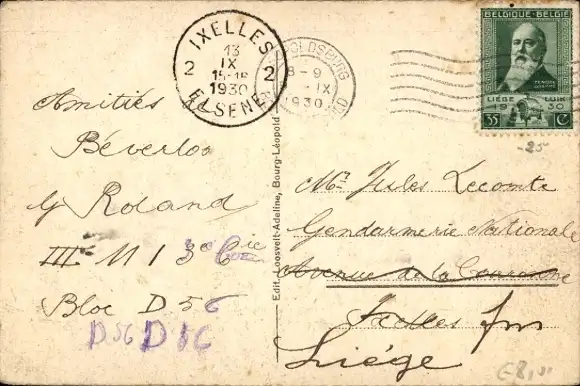 IXELLES
2 13 2
IX
15-16
1930
ELSENE
8-9
IX
1930
BELGIQUE-BELGIE
LIÉGE LUIK
19 30
35 C
-25
Amitiés de
Béverloo
Roland
III 11 I 3e Cie
Bloc D 56
D 56 D 56
Edit. Loosvelt-Adeline, Bourg-Léopold
Mr Jules Lecomte
Gendarmerie Nationale
Avenue de la Couronne
Ixelles
Liége